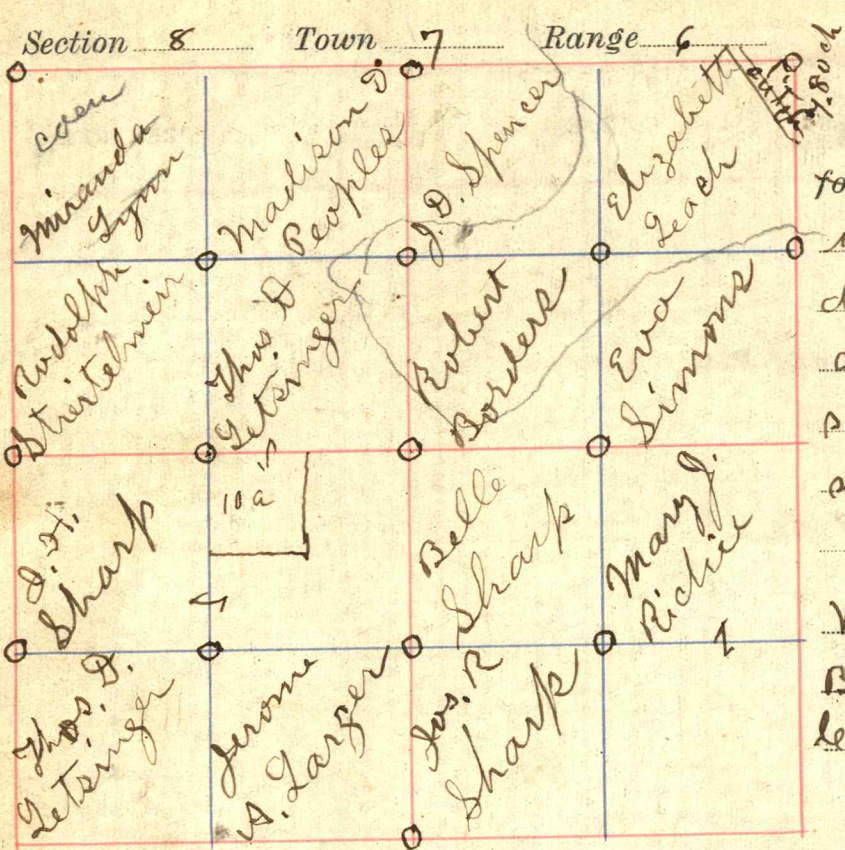 Section 8 Town 7 Range 6
coen
Miranda
Lynn
Madison D.
Peoples
J. D. Spencer
Elizabeth
Leach
7.80 ch
fo
Rudolph
Thos D
Letsinger
Robert
Borders
Eva
Simons
Sharp
10 a
Belle
Sharp
Mary J.
Richie
Thos. D.
Letsinger
Jerome
A. Larger
Jos. R
Sharp